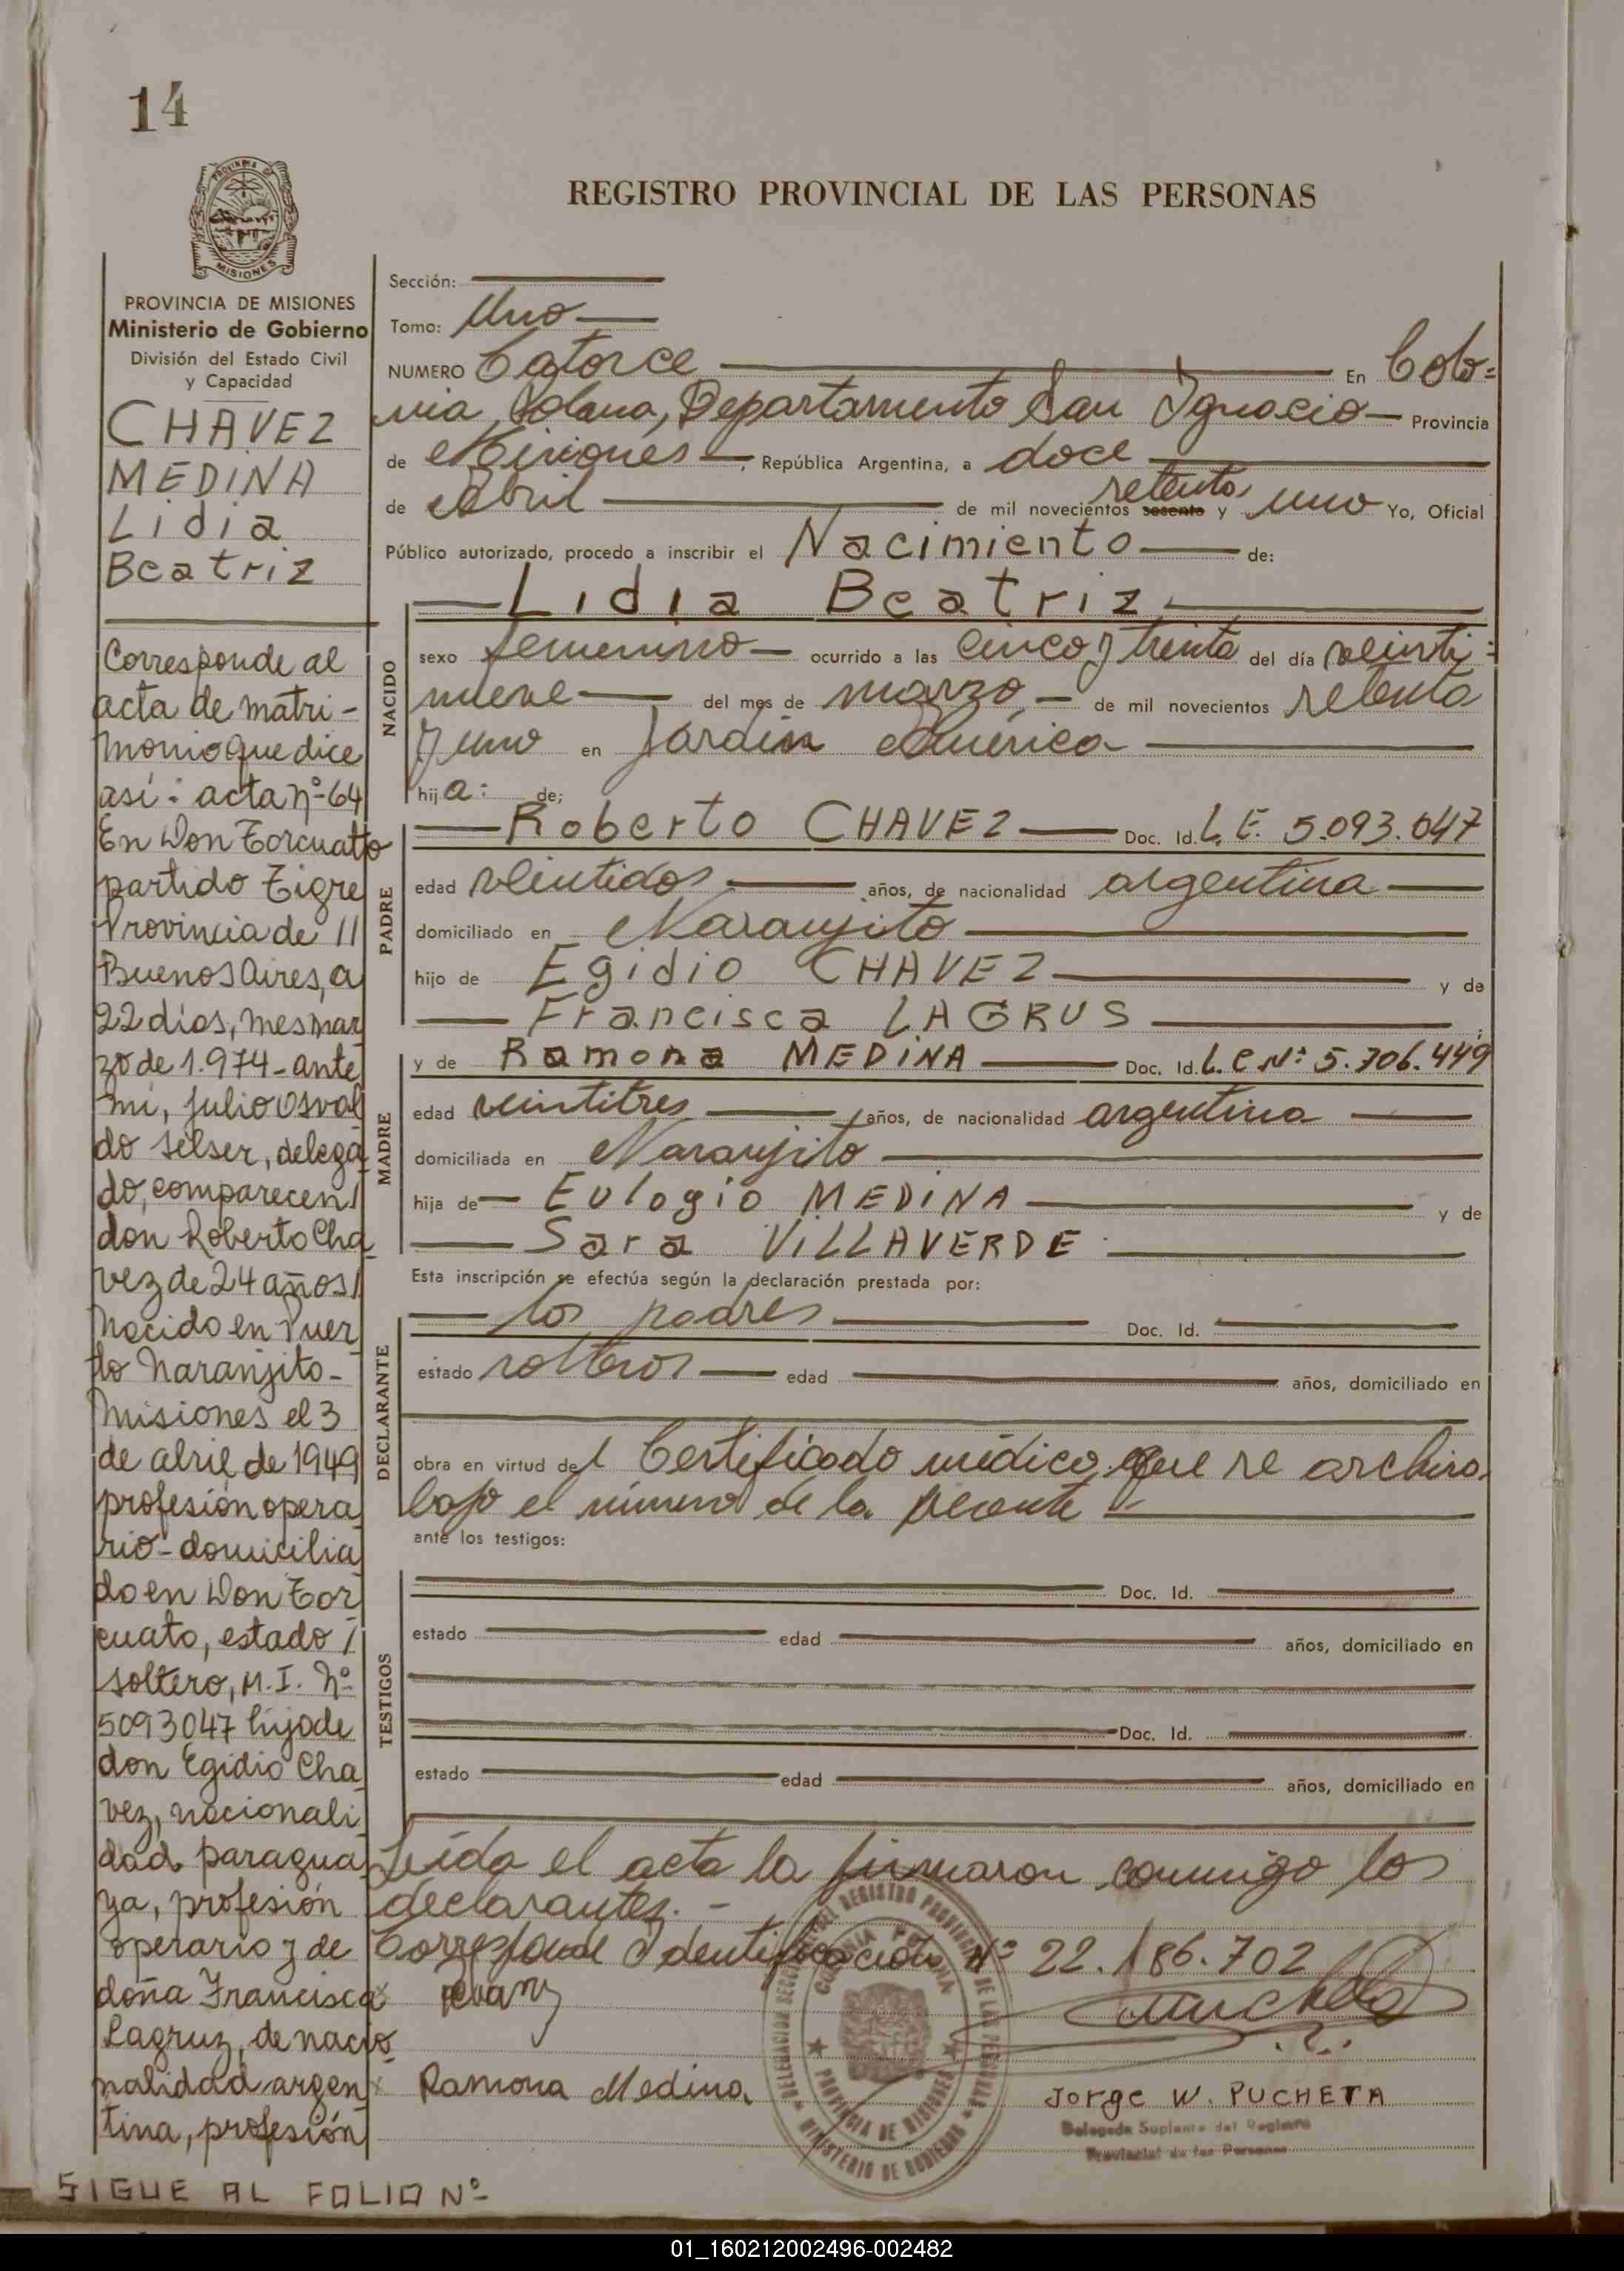 14
REGISTRO PROVINCIAL DE LAS PERSONAS
MISIONES
PROVINCIA DE MISIONES
Ministerio de Gobierno
División del Estado Civil
y Capacidad
CHAVEZ
MEDINA
Lidia
Beatriz
Corresponde al
acta de matri-
monio que dice
así: acta nº 64
En Don Torcuatto
partido Tigre
Provincia de //
Buenos Aires, a
22 dias, mes mar
zo de 1.974- ante
mi, Julio Osval
do Selser, delega
do, comparecen/
don Roberto Cha
vez de 24 años/
nacido en Puer
to Naranjito-
Misiones el 3
de abril de 1949
profesión opera
rio- domicilia
do en Don Tor
cuato, estado /
soltero, M.I. Nº
5093047 hijo de
don Egidio Cha
vez, nacionali
dad paragua
ya, profesión
operario y de
doña Francisca
Lagruz, de nacio
nalidad argen
tina, profesión
SIGUE AL FOLIO Nº
Sección:
Tomo: Uno
NUMERO Catorce En Colo=
nia Polana, Departamento San Ignacio Provincia
de Misiones, República Argentina, a doce
de Abril de mil novecientos sesenta setenta y uno Yo, Oficial
Público autorizado, procedo a inscribir el Nacimiento de:
Lidia Beatriz
NACIDO
sexo femenino ocurrido a las cinco y treinta del día veinti=
nueve del mes de marzo, de mil novecientos setenta
y uno en Jardin América
hija: de;
PADRE
Roberto CHAVEZ Doc. Id. L.E. 5.093.047
edad veintidos años, de nacionalidad argentina
domiciliado en Naranjito
hijo de Egidio CHAVEZ y de
Francisca LAGRUS ;
MADRE
y de Ramona MEDINA Doc. Id. L.C Nº 5.706.449
edad veintitres, años, de nacionalidad argentina
domiciliada en Naranjito
hija de Eulogio MEDINA y de
Sara VILLAVERDE
Esta inscripción se efectúa según la declaración prestada por:
DECLARANTE
los padres Doc. Id.
estado solteros edad años, domiciliado en
obra en virtud del Certificado médico que se archiva
bajo el número de la presente
ante los testigos:
TESTIGOS
Doc. Id.
estado edad años, domiciliado en
Doc. Id.
estado edad años, domiciliado en
Leida el acta la firmaron conmigo los
declarantes.-
Corresponde Identificación Nº 22.186.702
Ramona Medina
Jorge W. PUCHETA
Delegado Suplente del Registro
Provincial de las Personas
PROVINCIA DE MISIONES
MINISTERIO DE GOBIERNO
01_160212002496-002482